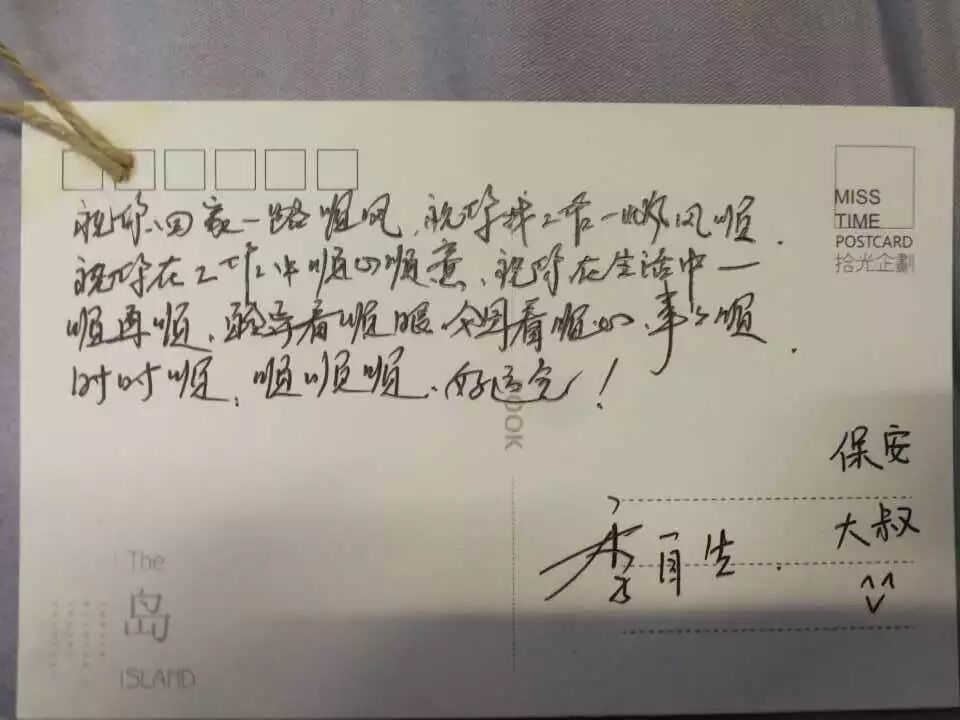 MISS
TIME
POSTCARD
拾光企劃
祝你回家一路顺风，祝你找工作一帆风顺．
祝你在工作中顺心顺意、祝你在生活中一
顺再顺、领导看顺眼 同事看顺心、事事顺
时时顺、顺顺顺、好运气！
OOK
保安
大叔
李自生．
The
岛
ISLAND